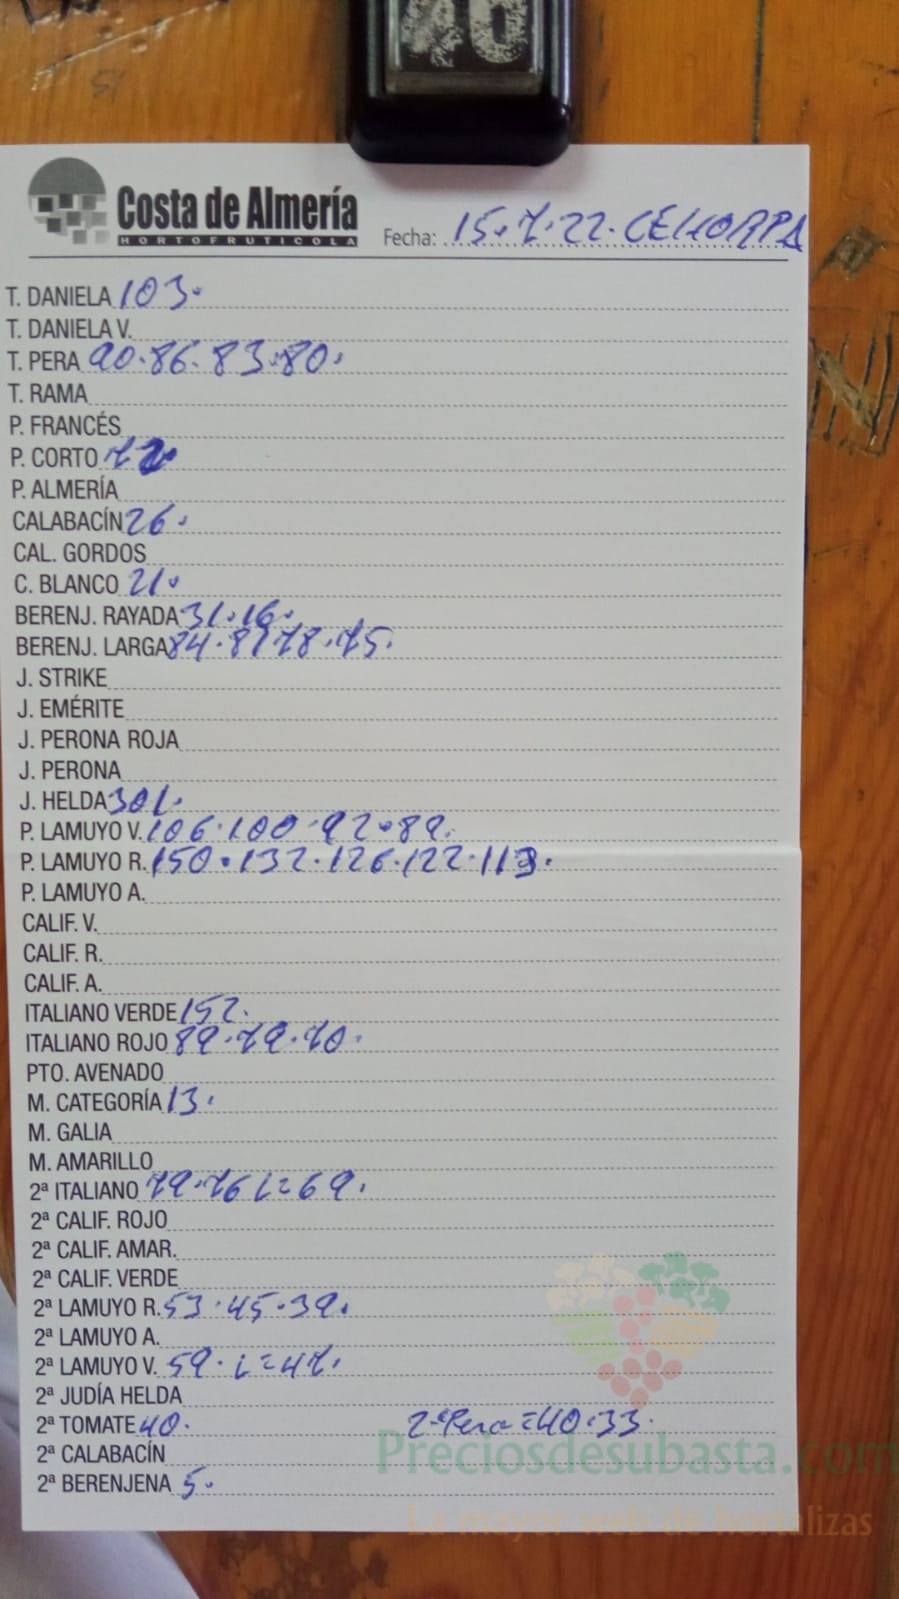 40
Costa de Almería
HORTOFRUTICOLA
Fecha: 15.7.22.CEHORPA
T. DANIELA 103.
T. DANIELA V.
T. PERA 90.86.83.80.
T. RAMA
P. FRANCÉS
P. CORTO 72
P. ALMERÍA
CALABACÍN 26.
CAL. GORDOS
C. BLANCO 21.
BERENJ. RAYADA 31.16.
BERENJ. LARGA 84.81 78.75.
J. STRIKE
J. EMÉRITE
J. PERONA ROJA
J. PERONA
J. HELDA 301.
P. LAMUYO V. 106.100.92.89.
P. LAMUYO R. 150.132.126.122.113.
P. LAMUYO A.
CALIF. V.
CALIF. R.
CALIF. A.
ITALIANO VERDE 152.
ITALIANO ROJO 89.79.70.
PTO. AVENADO
M. CATEGORÍA 13.
M. GALIA
M. AMARILLO
2ª ITALIANO 79.76 L=69.
2ª CALIF. ROJO
2ª CALIF. AMAR.
2ª CALIF. VERDE
2ª LAMUYO R. 53.45.39.
2ª LAMUYO A.
2ª LAMUYO V. 59. L=47.
2ª JUDÍA HELDA
2ª TOMATE 40. 2ª Pera=40.33.
2ª CALABACÍN
2ª BERENJENA 5.
Preciosdesubasta.com
La mayor web de hortalizas